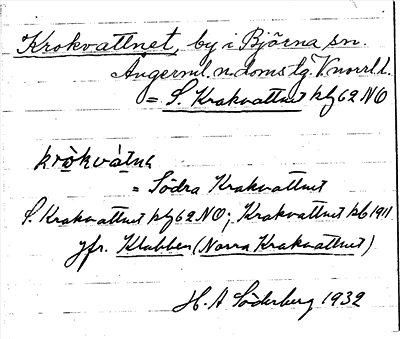 Krokvattnet, by i Björna sn.
Ångerml. n. doms. tg. V.norrl. l.
= S. Krakvattnet kbg 62 NO
kròkvátnə
= Södra Krakvattnet
S. Krakvattnet kbg 62 NO; Krakvattnet kb 1911
jfr. Klubben (Norra Krakvattnet)
H. A Söderberg 1932